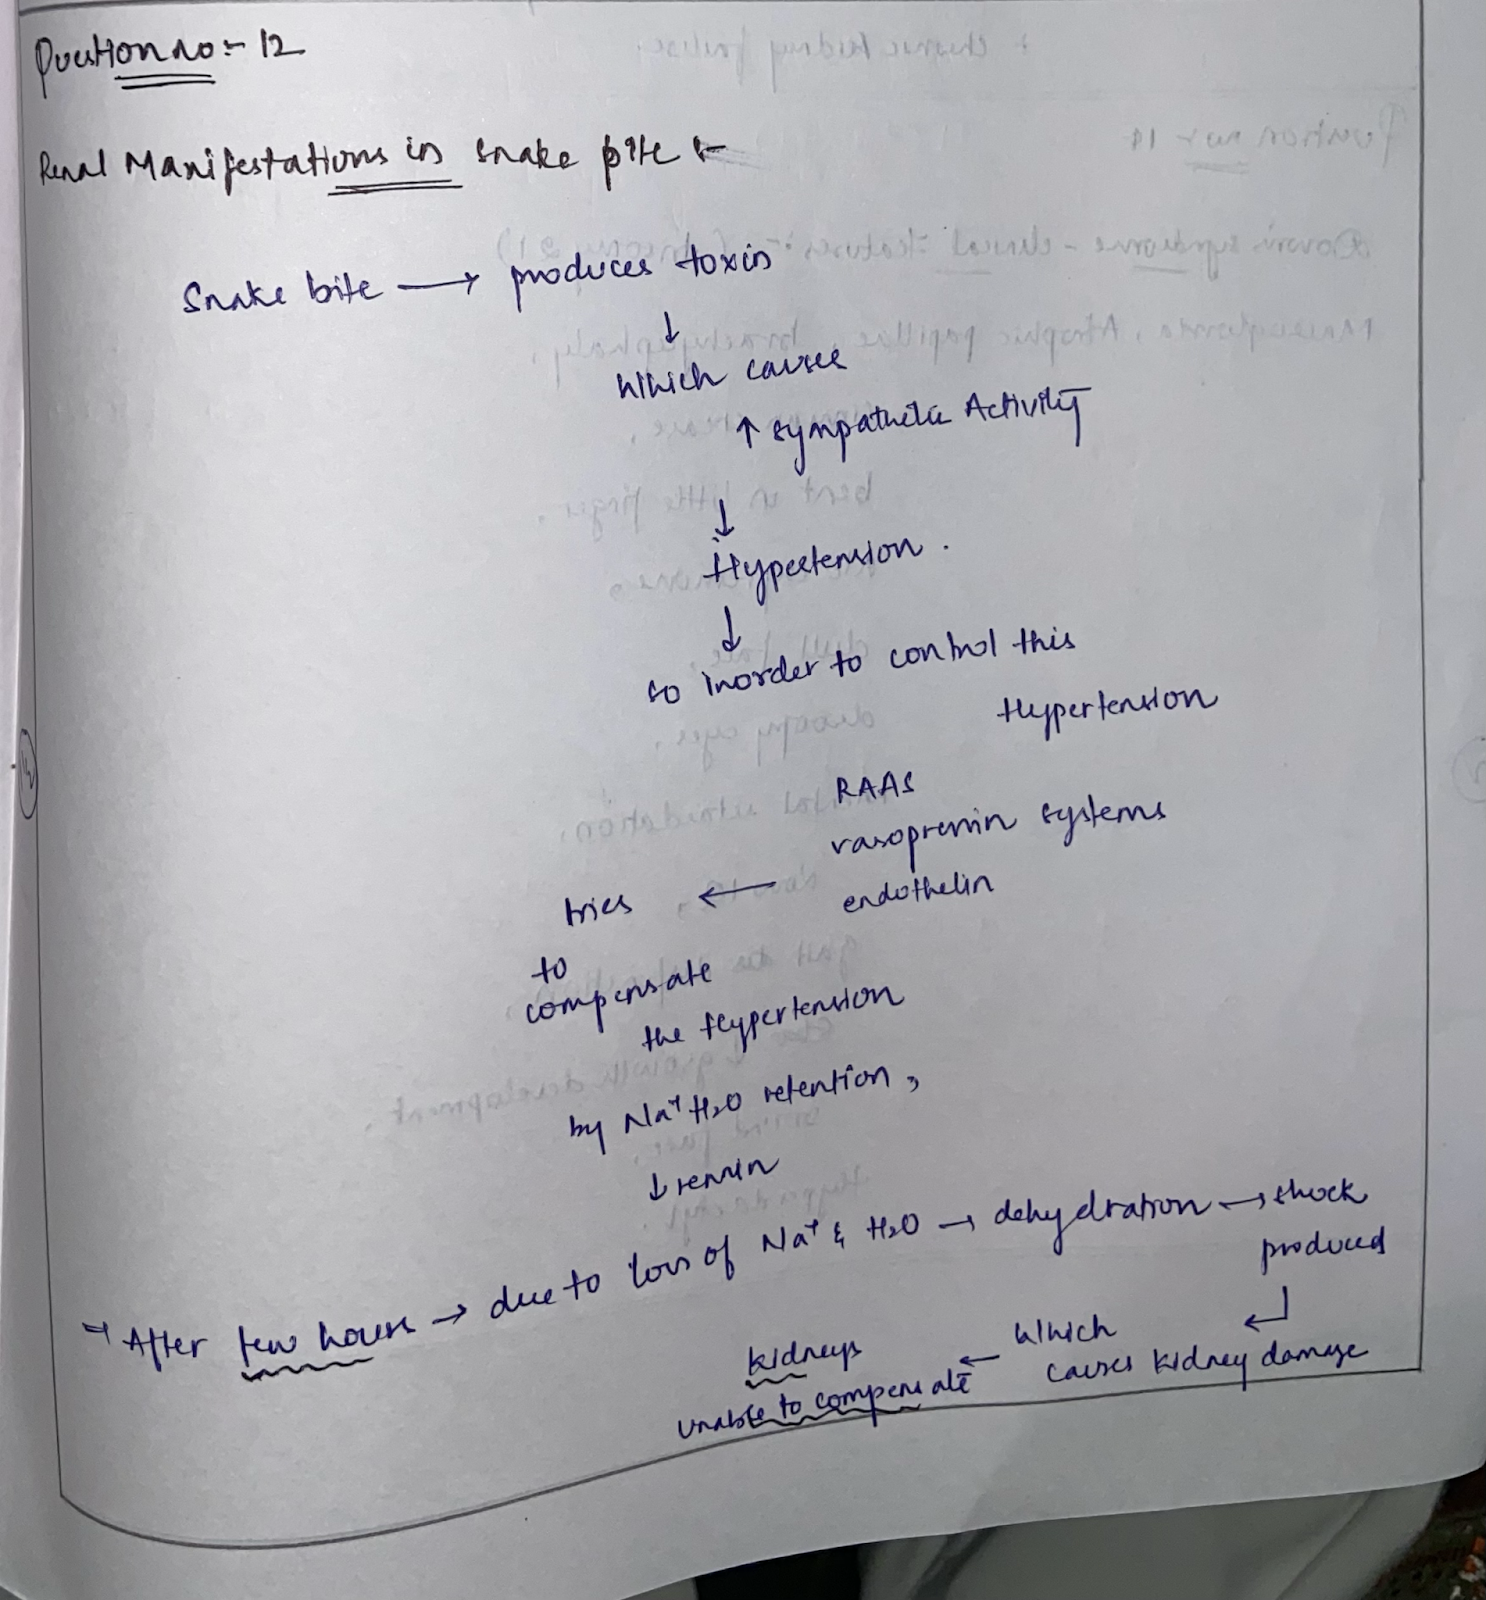 Question no:- 12
Renal Manifestations in snake bite :-
Snake bite → produces toxin
↓
which causes
↑ sympathetic Activity
↓
Hypertension.
↓
so inorder to control this
Hypertension
RAAS
vasopressin systems
tries ← endothelin
to
compensate
the Hypertension
by Na+ H2O retention,
↓ renin
→ After few hours → due to loss of Na+ & H2O → dehydration → shock
produced
↓
kidneys ← which
unable to compensate causes kidney damage